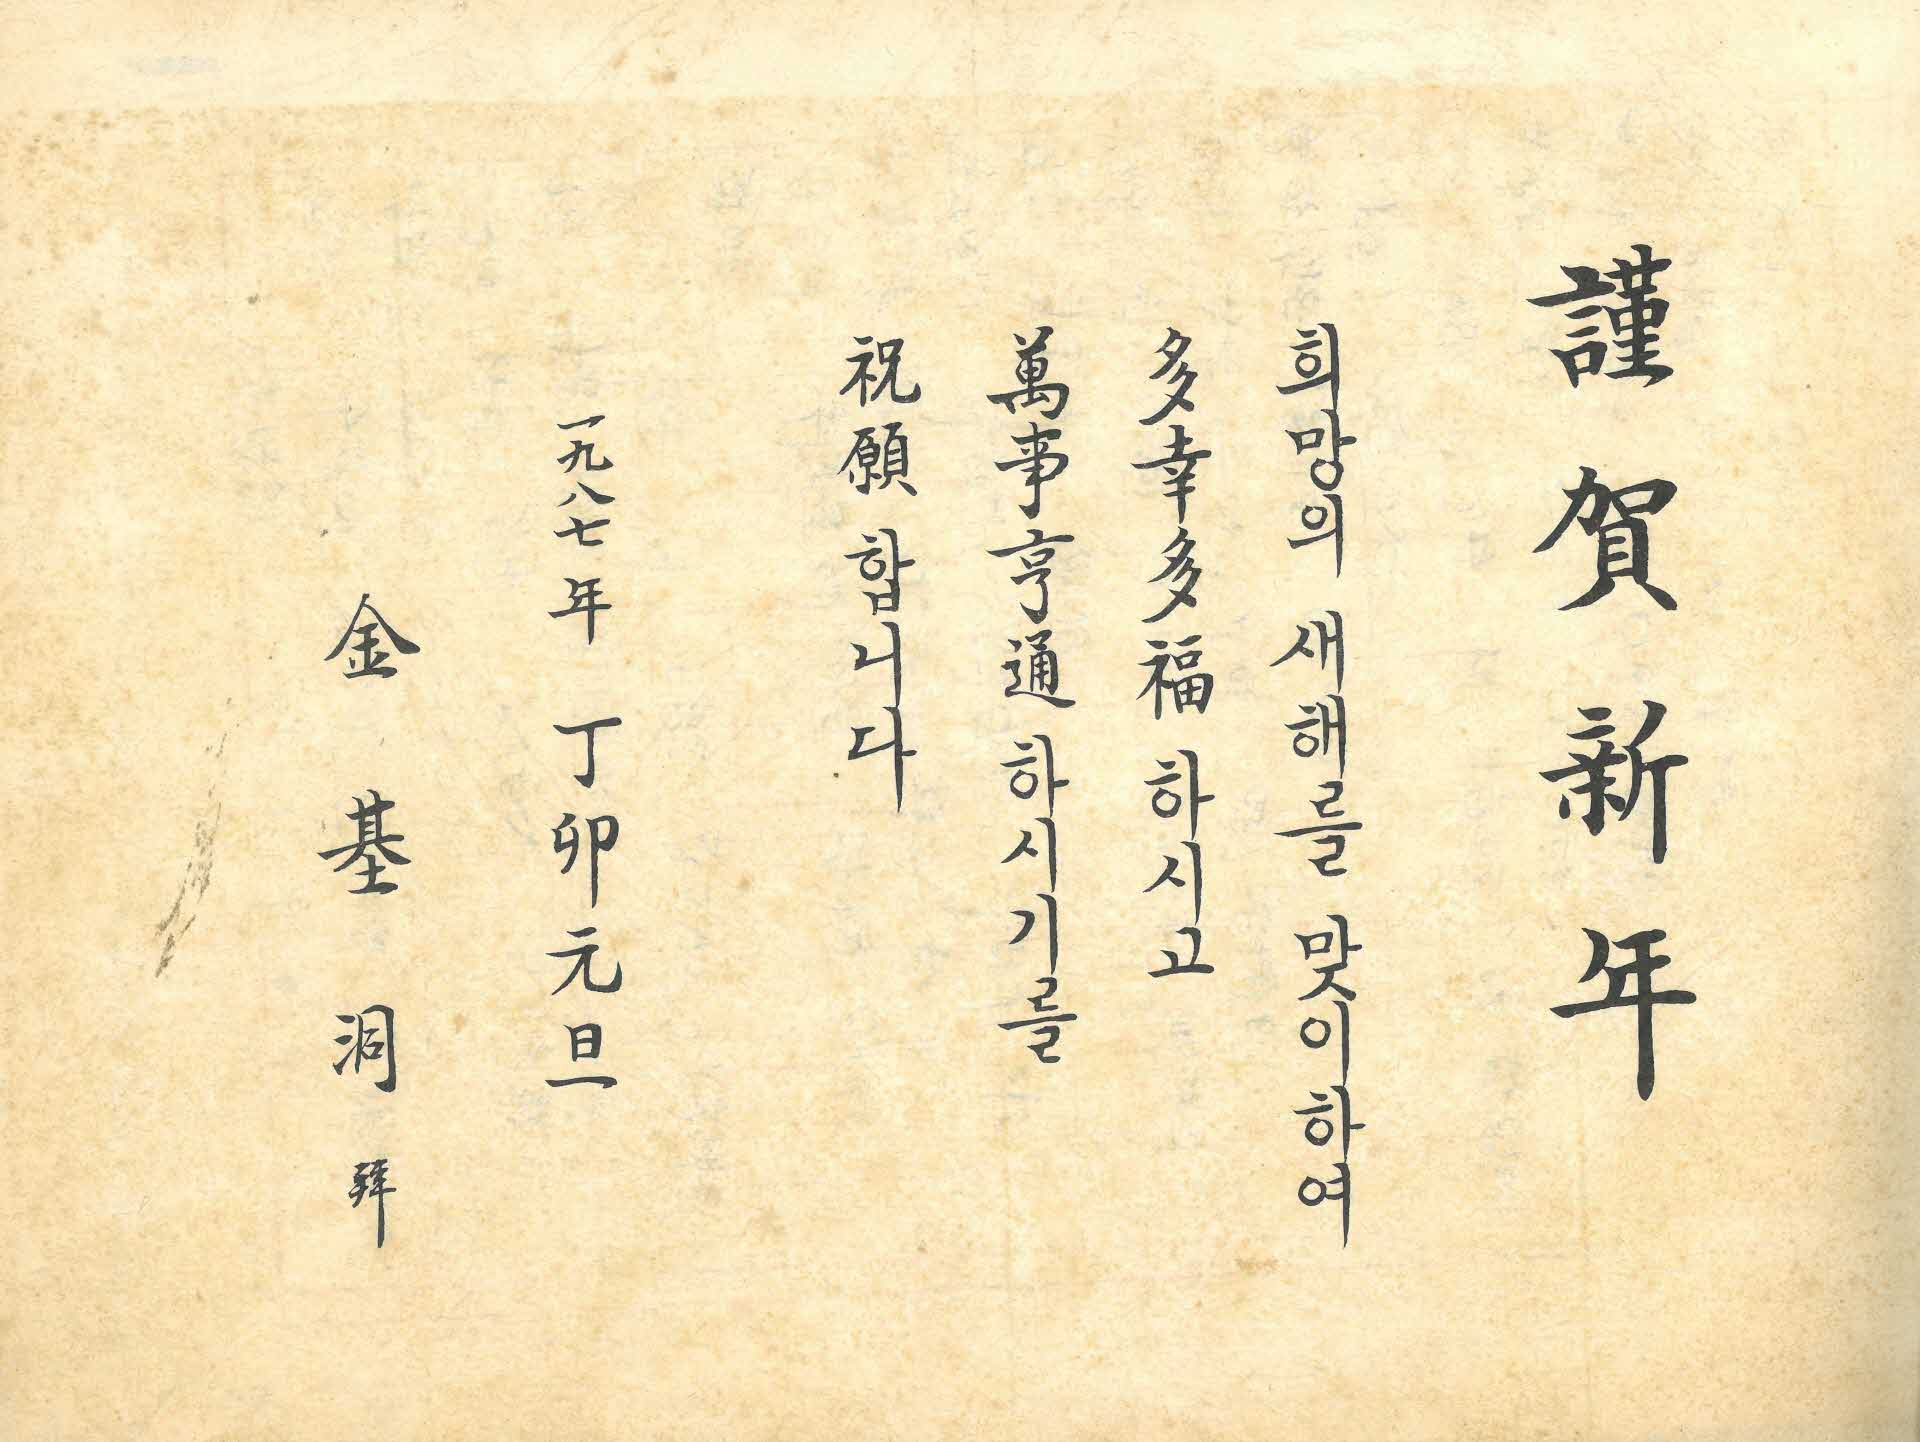 謹賀新年
희망의 새해를 맞이하여
多幸多福 하시고
萬事亨通 하시기를
祝願 합니다
一九八七年 丁卯元旦
金基洞 拜